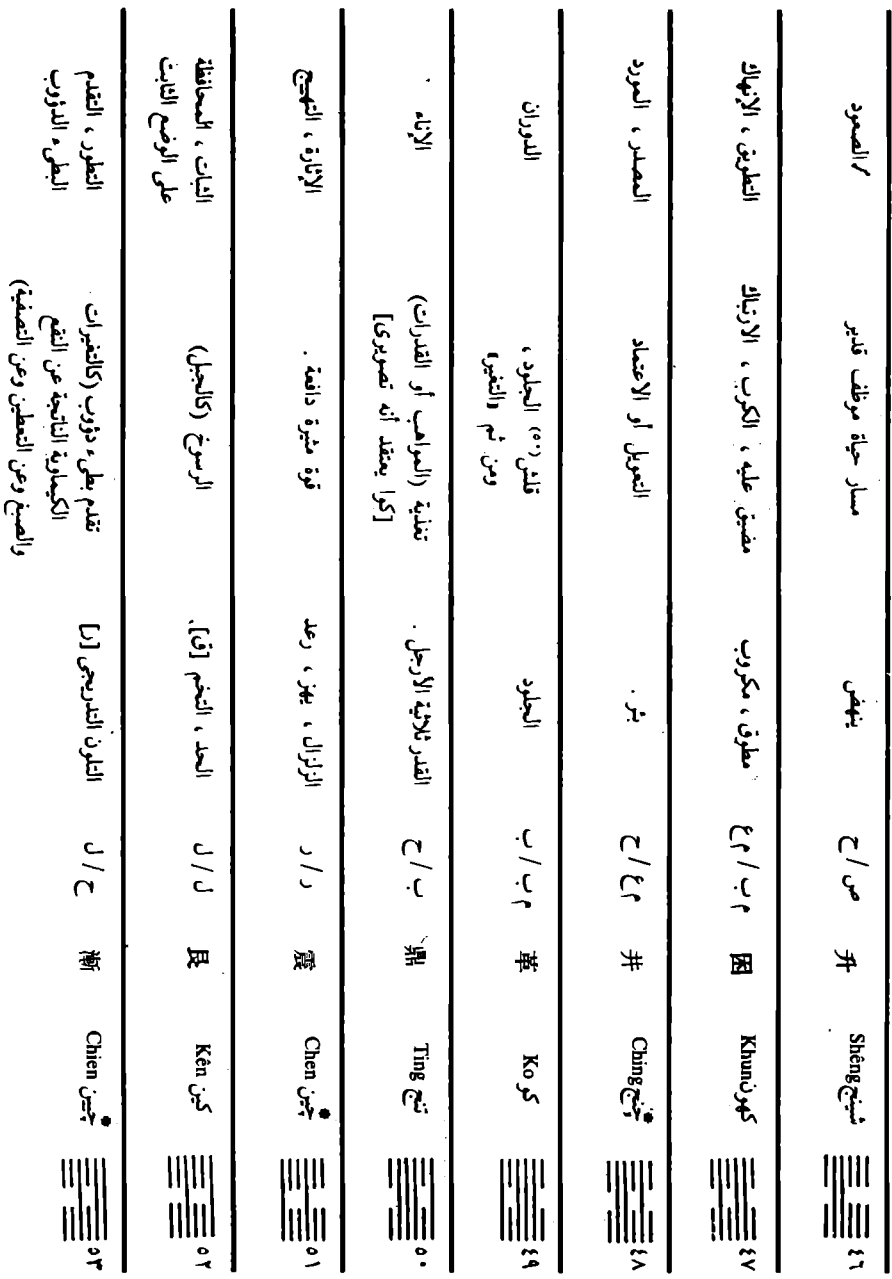 ٤٦ شينج Shêng 升 ص / ح ينهض مسار حياة موظف قدير الصعود
٤٧ كهون Khun 困 م ب / م ع مطوق ، مكروب مضيق عليه ، الكرب ، الارتباك التطويق ، الإنهاك
٤٨ چنج Ching 井 م ع / ح بئر . التعويل أو الاعتماد المصدر ، المورد
٤٩ كو Ko 革 م ب / ب الجلود قلش (٥٠) الجلود ، الدوران
ومن ثم «التغير»
٥٠ تنج Ting 鼎 ب / ح القدر ثلاثية الأرجل . تغذية (المواهب أو القدرات) الإناء .
[كوا يعتقد أنه تصويرى]
٥١ چين Chen 震 ر / ر الزلزال ، يهز ، رعد قوة مثيرة دافعة . الإثارة ، التهييج
٥٢ كين Kên 艮 ل / ل الحد ، التخم [ق]. الرسوخ (كالجبل) الثبات ، المحافظة
على الوضع الثابت
٥٣ چيين Chien 漸 ح / ل التلون التدريجى [ر] تقدم بطىء دؤوب (كالتغيرات التطور ، التقدم
الكيماوية الناتجة عن النقع البطىء الدؤوب
والصبغ وعن التعطين وعن التصفية)